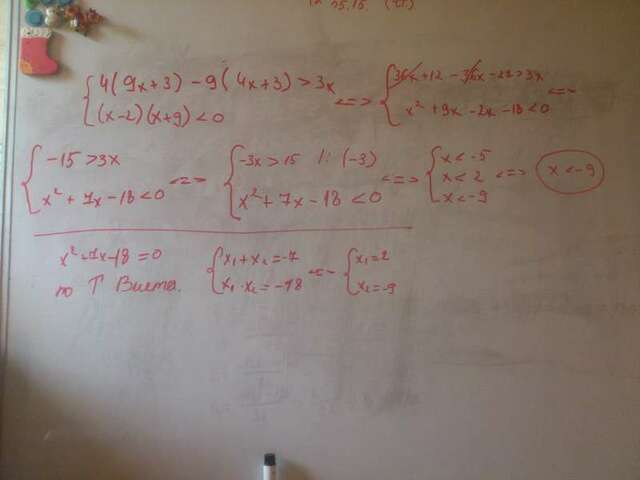 { 4(9x+3) - 9(4x+3) > 3x
(x-2)(x+9) < 0 <=> { 36x + 12 - 36x - 27 > 3x
x² + 9x - 2x - 18 < 0 <=>
{ -15 > 3x
x² + 7x - 18 < 0 <=> { -3x > 15 |: (-3)
x² + 7x - 18 < 0 <=> { x < -5
x < 2
x < -9 <=> x < -9
x² - 7x - 18 = 0
по Т Виета.
{ x₁ + x₂ = -7
x₁ · x₂ = -18 <=> { x₁ = 2
x₂ = -9